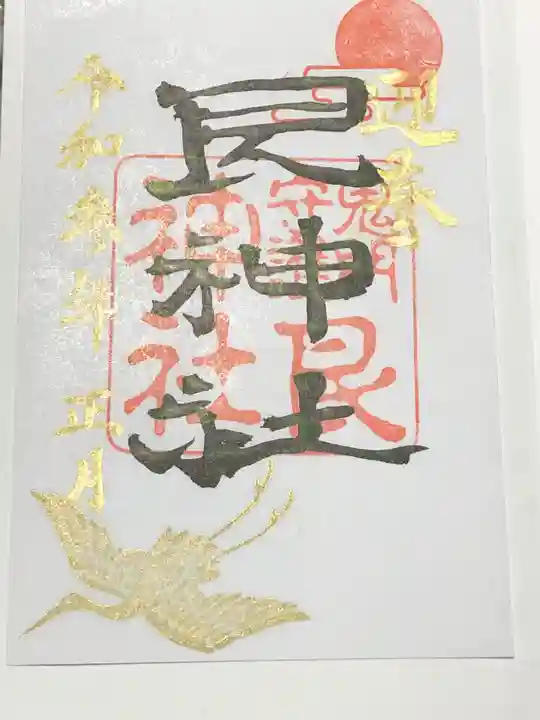 迎春
艮神社
令和参年正月
鬼門
守護
艮
神社